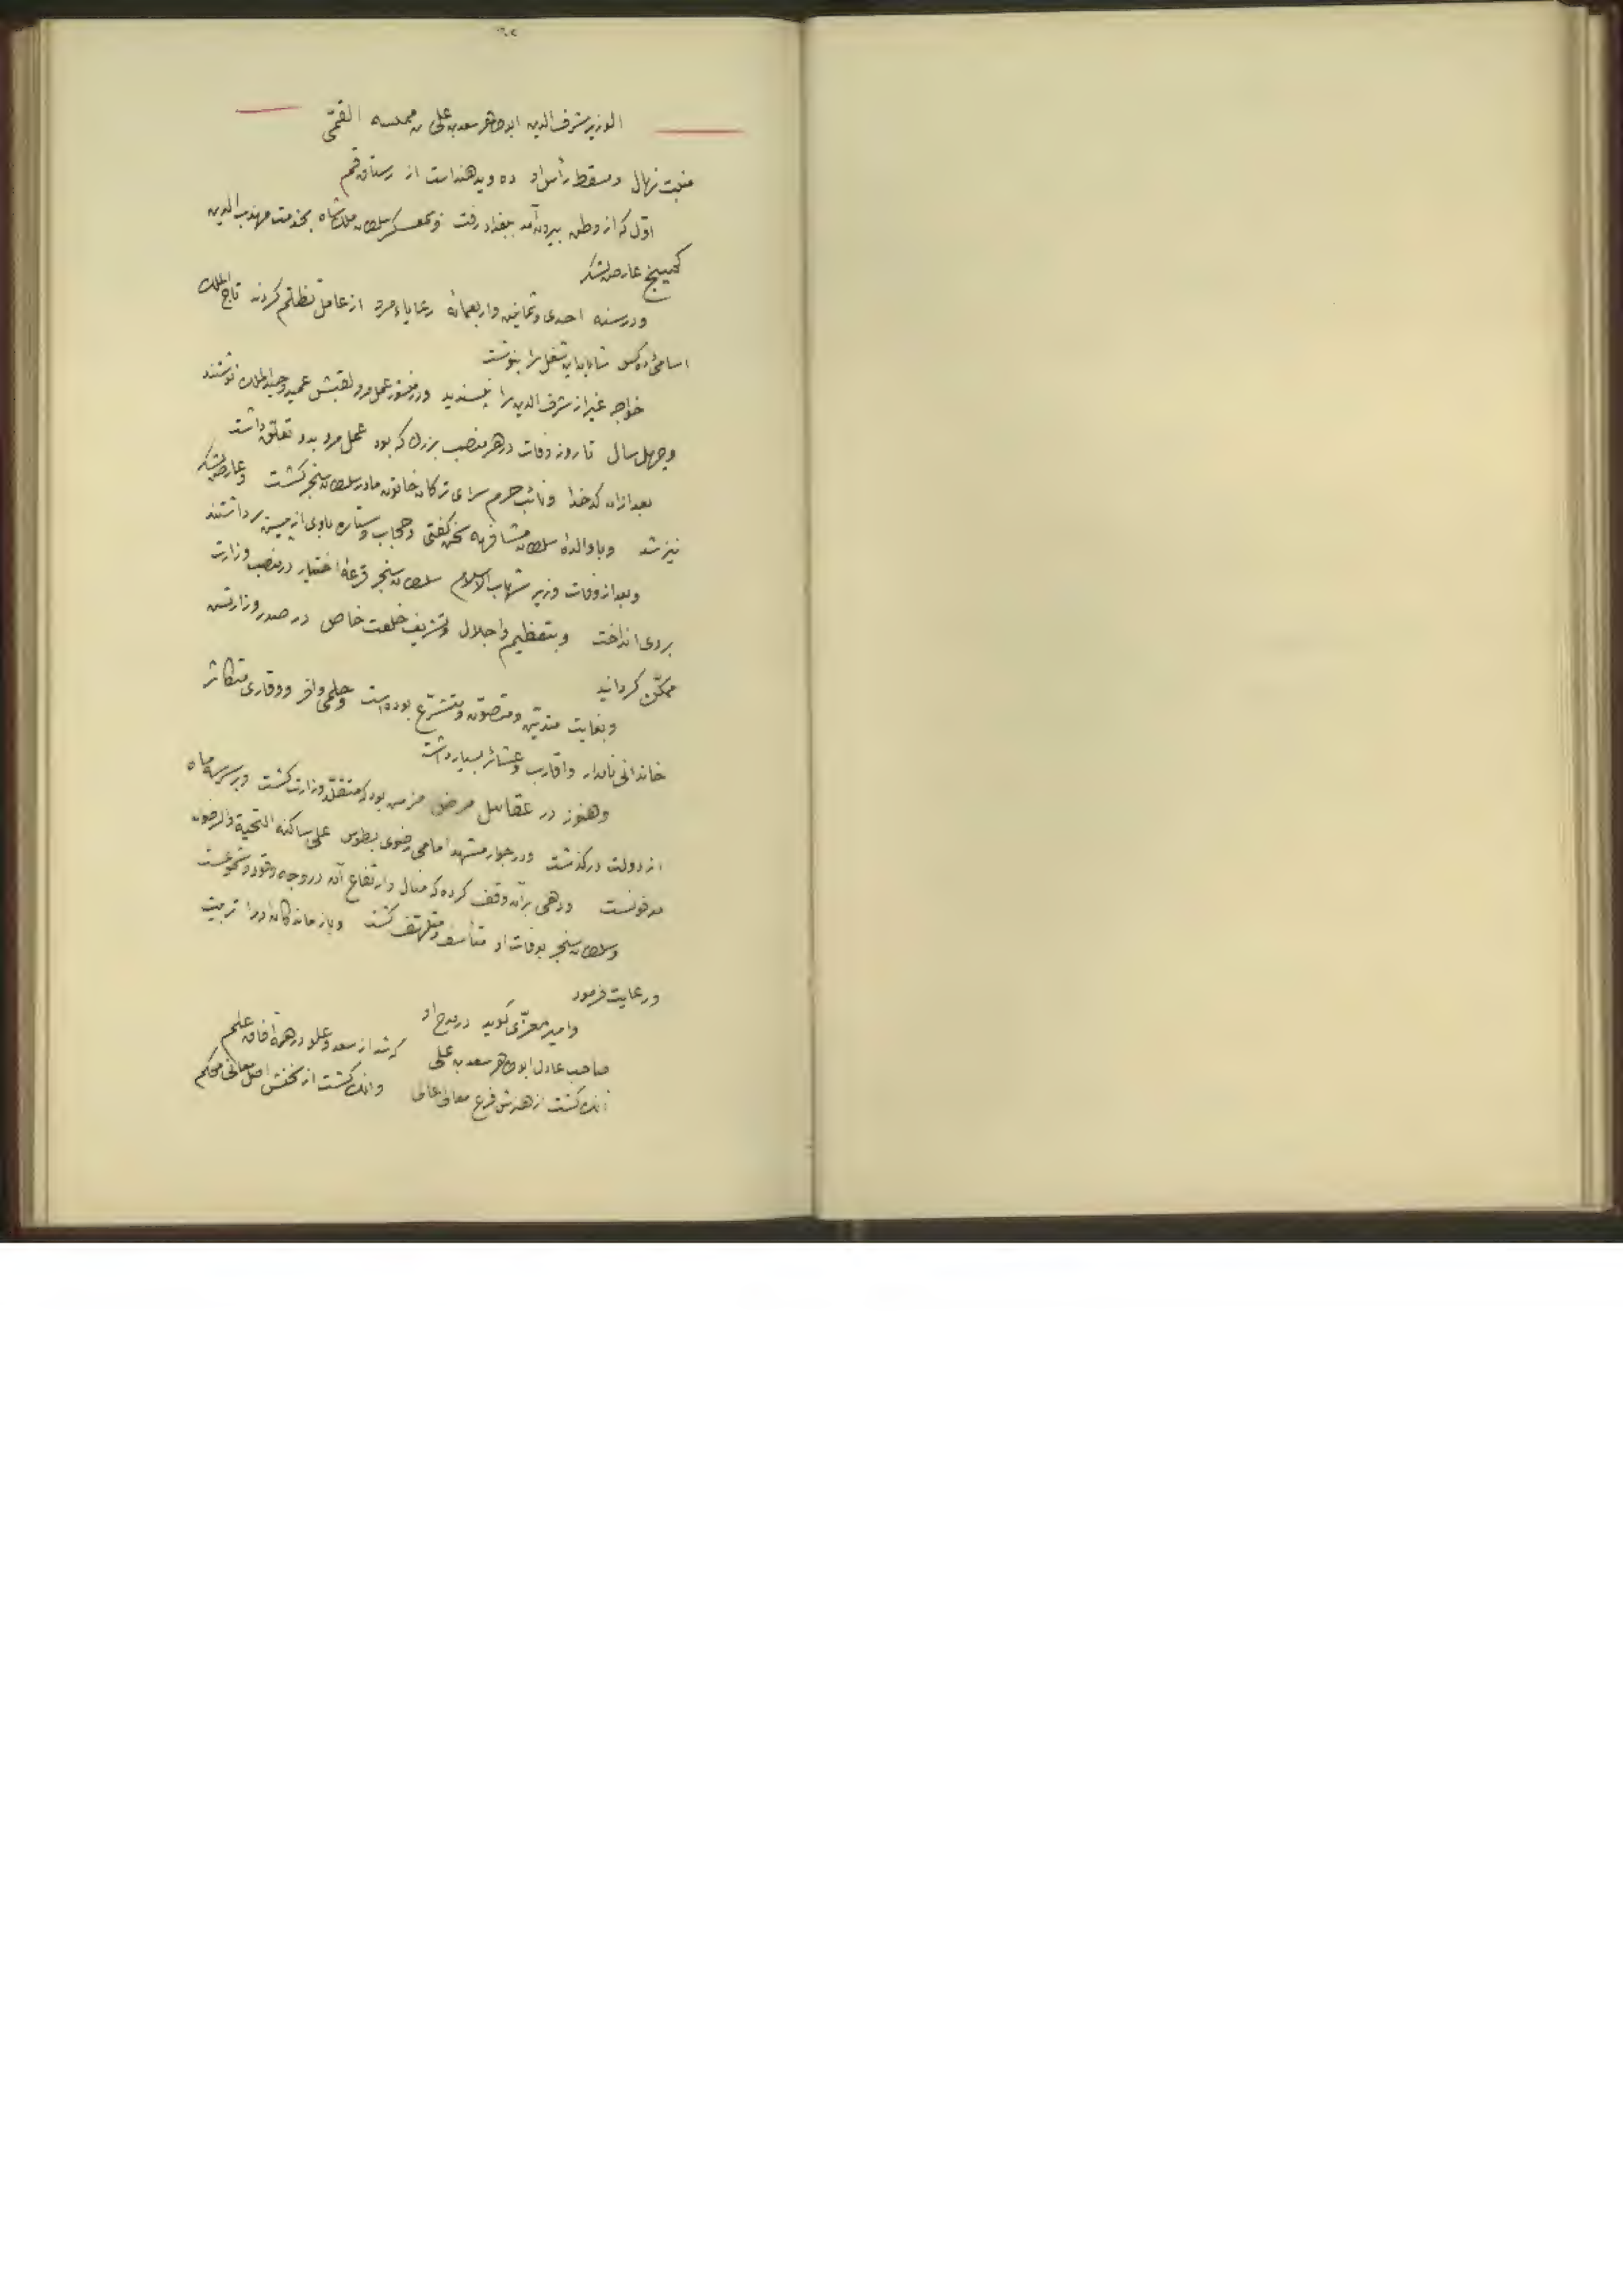 ٦٢
الوزیر شرف الدین ابوطاهر سعد بن علی بن القمّی
منبت نهال و مسقط رأس او ده ویدهند است از رستاق قم
اوّل که از وطن بیرون آمد ببغداد رفت و بمعسکر سلطان ملک شاه بخدمت مهذب الدین
کمیج عارض لشکر
و در سنه احدی و ثمانین و اربعمائه رعایاء مرو از عامل تظلّم کردند تاج الملک
اسامئ ده کس شایان این شغل را بنوشت
خواجه غیر از شرف الدین را نپسندید و در منشور عمل مرو لقبش عمید و جیه الملک نوشتند
و چهل سال تا روز وفات در هر منصب بزرگ که بود عمل مرو بدو تعلّق داشت
بعد ازان کدخدا و نائب حرم سرای ترکان خاتون مادر سلطان سنجر کشت و عارض لشکر
نیز شد و با والدهٔ سلطان مشافهه سخن کفتی و حجاب و ستاره باوی از پیش برداشتند
و بعد از وفات وزیر شهاب الاسلام سلطان سنجر قرعهٔ اختیار در منصب وزارت
بروی انداخت و بتعظیم و اجلال و تشریف خلعت خاص در صدر وزارتش
ممکّن کردانید
و بغایت متدیّن و متصوّن و متشرّع بوده است و حلمی وافر و وقاری متکاثر
خاندانی نامدار و اقارب و عشائر بسیار داشت
و هنوز در عقابیل مرض مزمن بود که متقلّد وزارت کشت و بر سر سه ماه
از دولت درکذشت و در جوار مشهد امامی رضوی بطوس علی ساکنه التحیة و الرضوان
مدفونست و دهی بران وقف کرده که منال و ارتفاع آن در وجه وقود و شموعست
و سلطان سنجر بوفات او متأسف و متلهّف کشت و بازماندکان اورا تربیت
و رعایت فرمود
و امیر معزّی کوید در مدح او
صاحب عادل ابوطاهر سعد بن علی که شد از سعد و علو در همه آفاق علم
آنک کشت از هنرش فرع معانی عالی و انک کشت از سخنش اصل معانی محکم